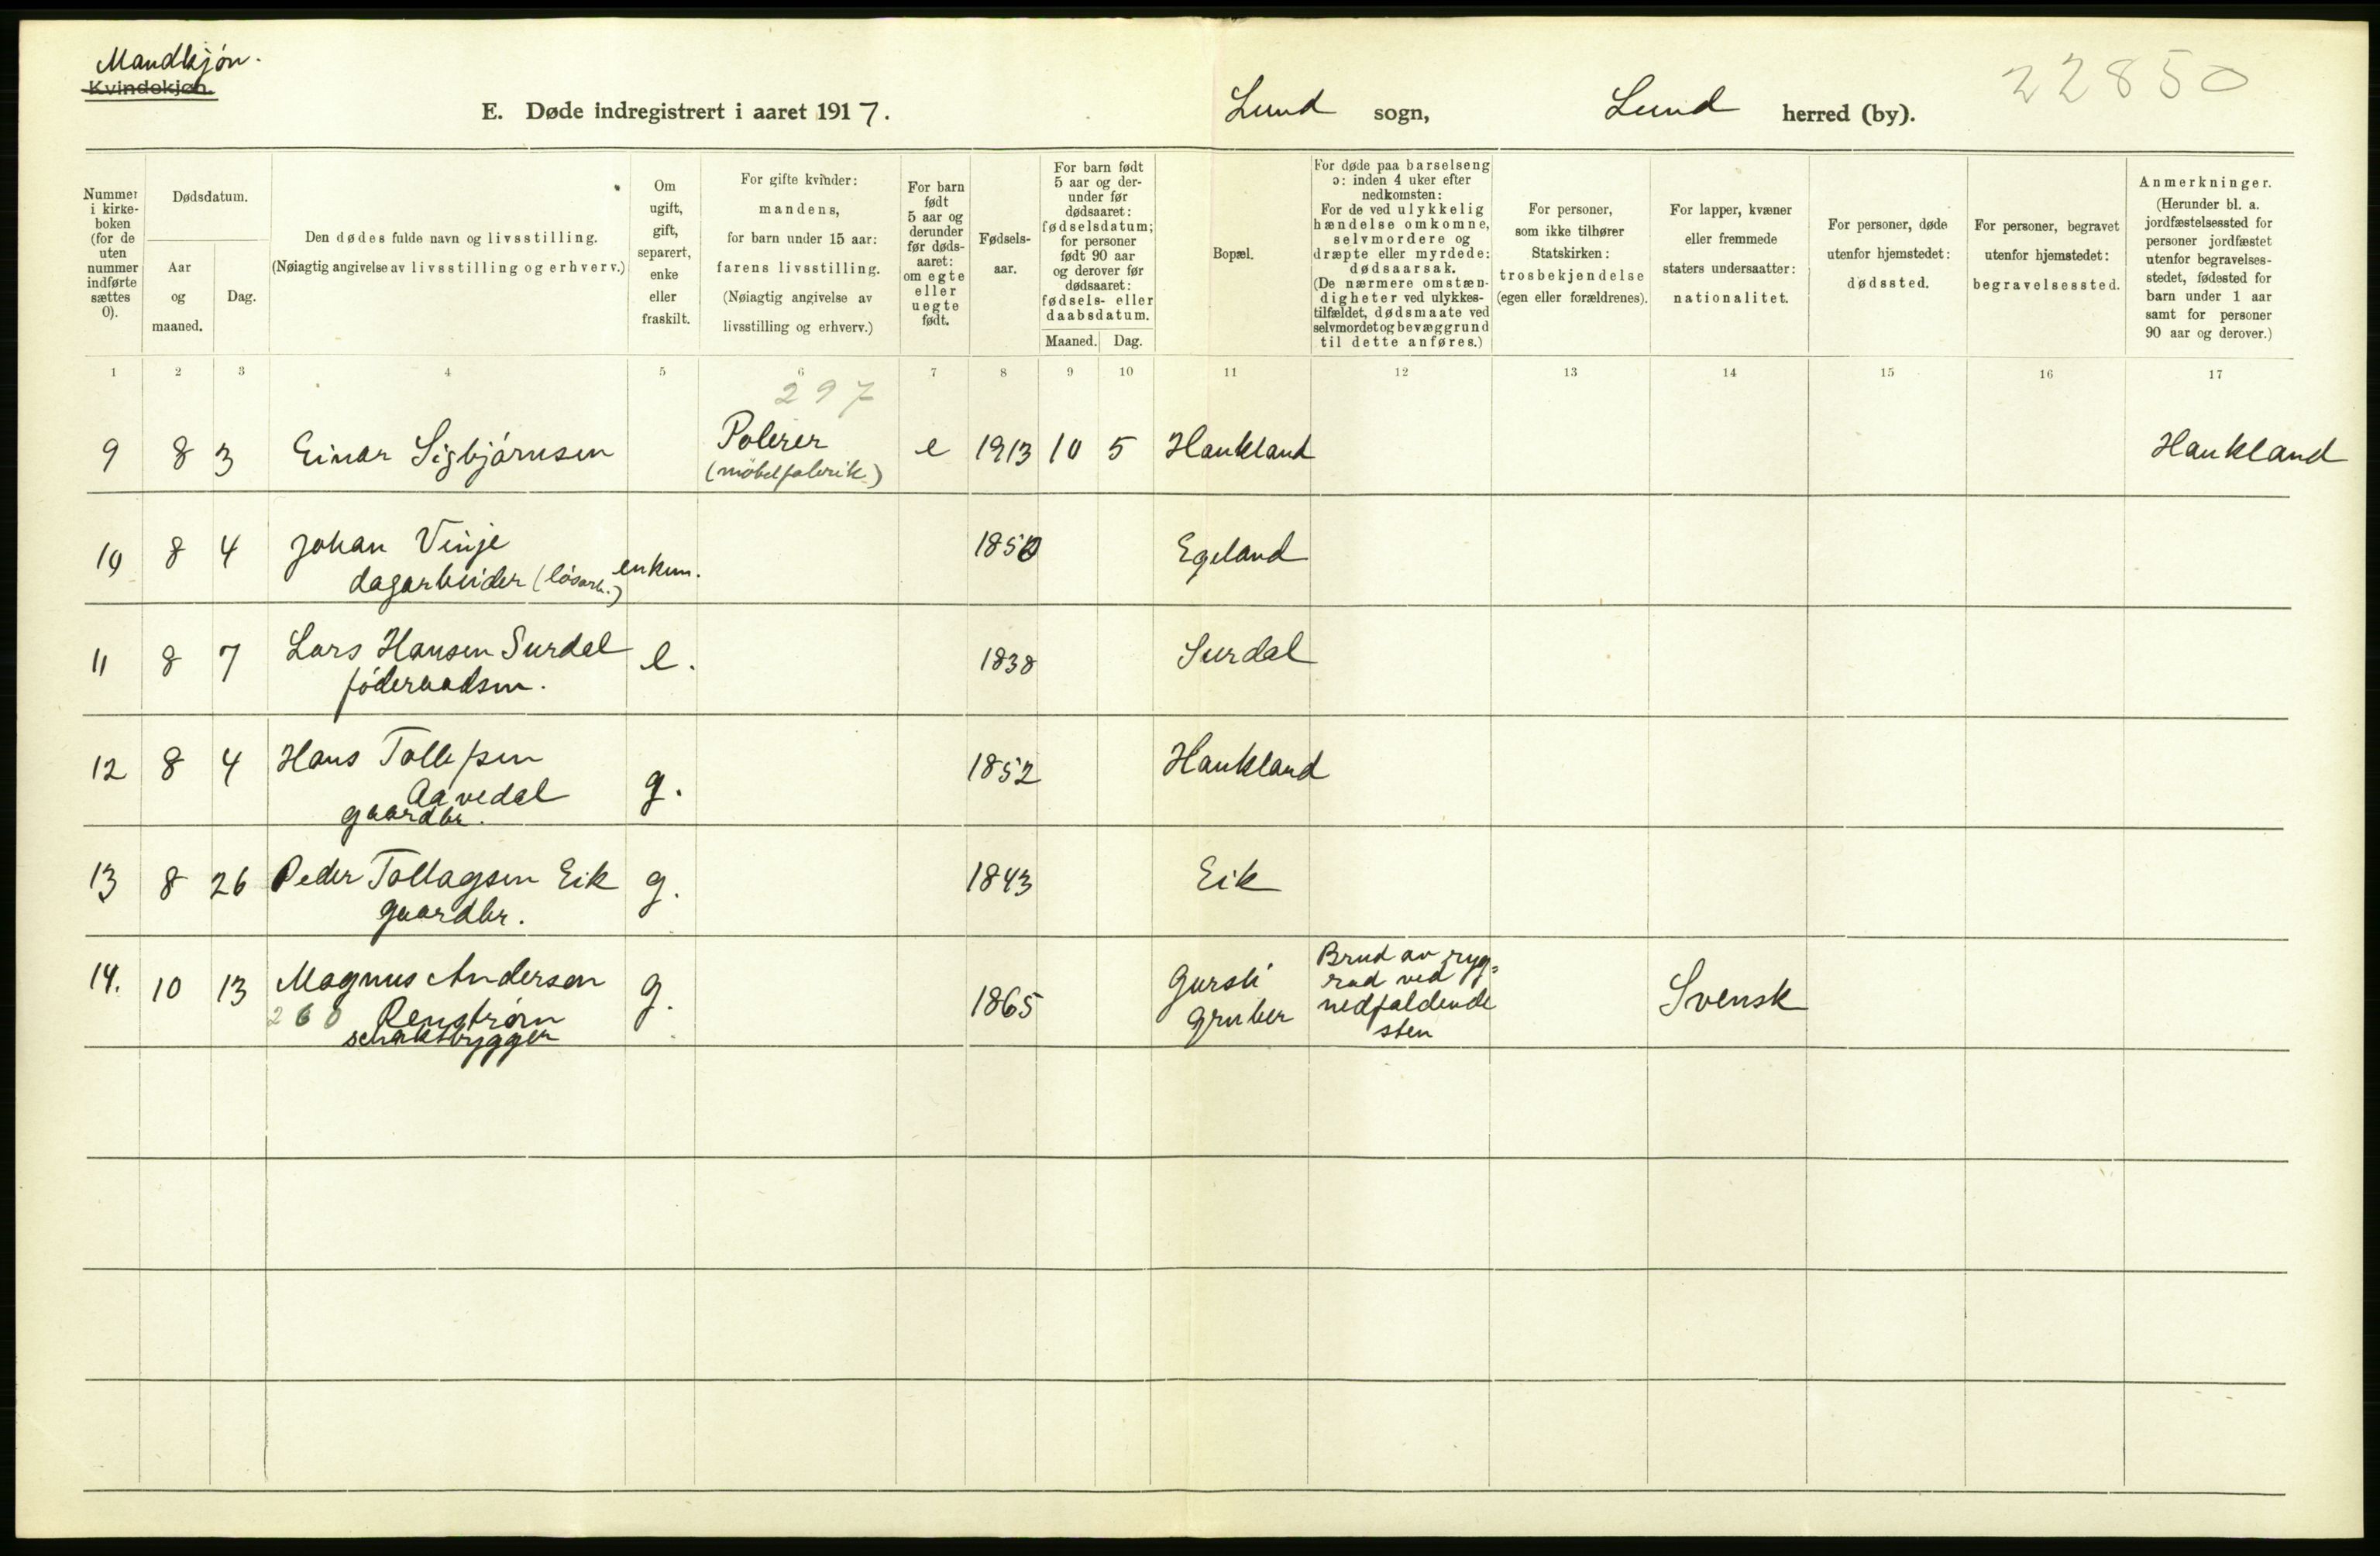 Mandkjøn.
Kvindekjøn.
E. Døde indregistrert i aaret 1917.
Lund sogn, Lund herred (by).
22850
Nummer i kirke-boken (for de uten nummer indførte sættes 0).
Dødsdatum.
Aar og maaned.
Dag.
Den dødes fulde navn og livsstilling.
(Nøiagtig angivelse av livsstilling og erhverv.)
Om ugift, gift, separert, enke eller fraskilt.
For gifte kvinder: mandens, for barn under 15 aar: farens livsstilling. (Nøiagtig angivelse av livsstilling og erhverv.)
For barn født 5 aar og derunder før døds-aaret: om egte eller uegte født.
Fødsels-aar.
For barn født 5 aar og der-under før dødsaaret: fødselsdatum; for personer født 90 aar og derover før dødsaaret: fødsels- eller daabsdatum.
Maaned. Dag.
Bopæl.
For døde paa barselseng ɔ: inden 4 uker efter nedkomsten: For de ved ulykkelig hændelse omkomne, selvmordere og dræpte eller myrdede: dødsaarsak. (De nærmere omstæn-digheter ved ulykkes-tilfældet, dødsmaate ved selvmordet og bevæggrund til dette anføres.)
For personer, som ikke tilhører Statskirken: trosbekjendelse (egen eller forældrenes).
For lapper, kvæner eller fremmede staters undersaatter: nationalitet.
For personer, døde utenfor hjemstedet: dødssted.
For personer, begravet utenfor hjemstedet: begravelsessted.
Anmerkninger. (Herunder bl. a. jordfæstelsessted for personer jordfæstet utenfor begravelses-stedet, fødested for barn under 1 aar samt for personer 90 aar og derover.)
1 2 3 4 5 6 7 8 9 10 11 12 13 14 15 16 17
297
9 8 3 Einar Sigbjørnsen Polerer e 1913 10 5 Haukland Haukland
(møbelfabrik)
10 8 4 Johan Vinje 1850 Egeland
dagarbeider (løsarb.) enkem.
11 8 7 Lars Hansen Surdal e. 1838 Surdal
føderaadsm.
12 8 4 Hans Tollefsen g. 1852 Haukland
Aavedal
gaardbr.
13 8 26 Peder Tollagsen Eik g. 1843 Eik
gaardbr.
14. 10 13 Magnus Anderson g. 1865 Gursli Brud av ryg- Svensk
260 Renstrøm Gruber rad ved
schaktbygger nedfaldende
sten